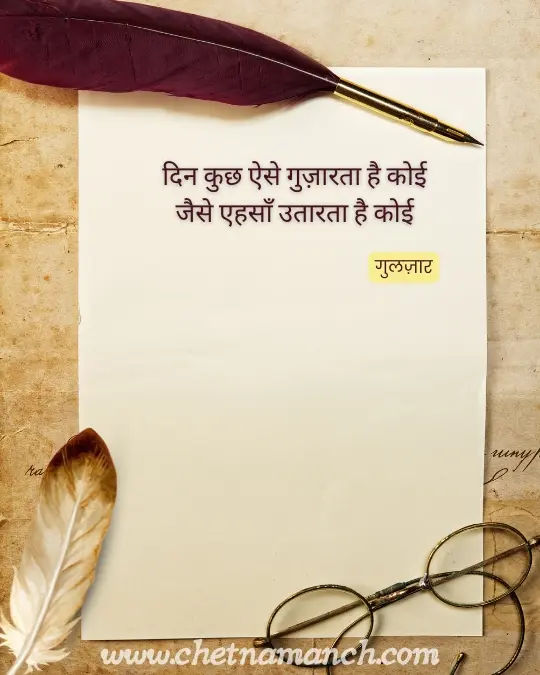 दिन कुछ ऐसे गुज़ारता है कोई
जैसे एहसाँ उतारता है कोई
गुलज़ार
www.chetnamanch.com